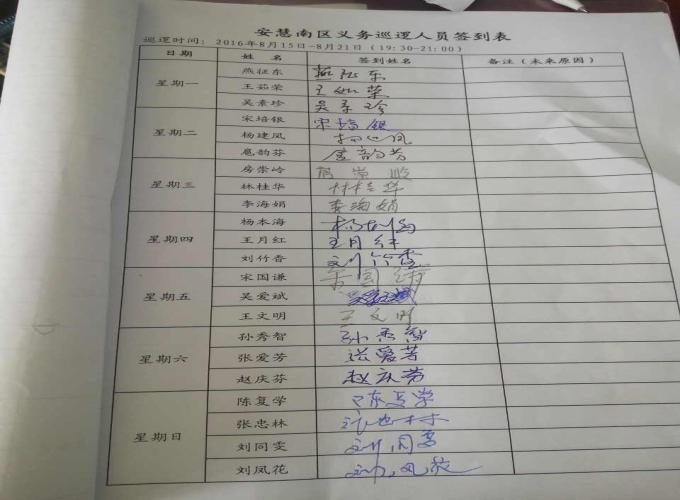 安慧南区义务巡逻人员签到表
巡逻时间：2016年8月15日-8月21日（19:30-21:00）
日期 姓名 签到姓名 备注（未来原因）
星期一 燕征东 燕征东
王茹荣 王茹荣
吴素珍 吴素珍
星期二 宋培银 宋培银
杨建凤 杨心凤
扈韵芬 扈韵芬
星期三 房崇岭
林桂华 林桂华
李海娟 李海娟
星期四 杨本海 杨本海
王月红 王月红
刘竹香 刘竹香
星期五 宋国谦 宋国谦
吴爱斌
王文明 王文明
星期六 孙秀智 孙秀智
张爱芳 张爱芳
赵庆芬 赵庆芬
星期日 陈复学 陈复学
张忠林 张忠林
刘同雯 刘同雯
刘凤花 刘凤花